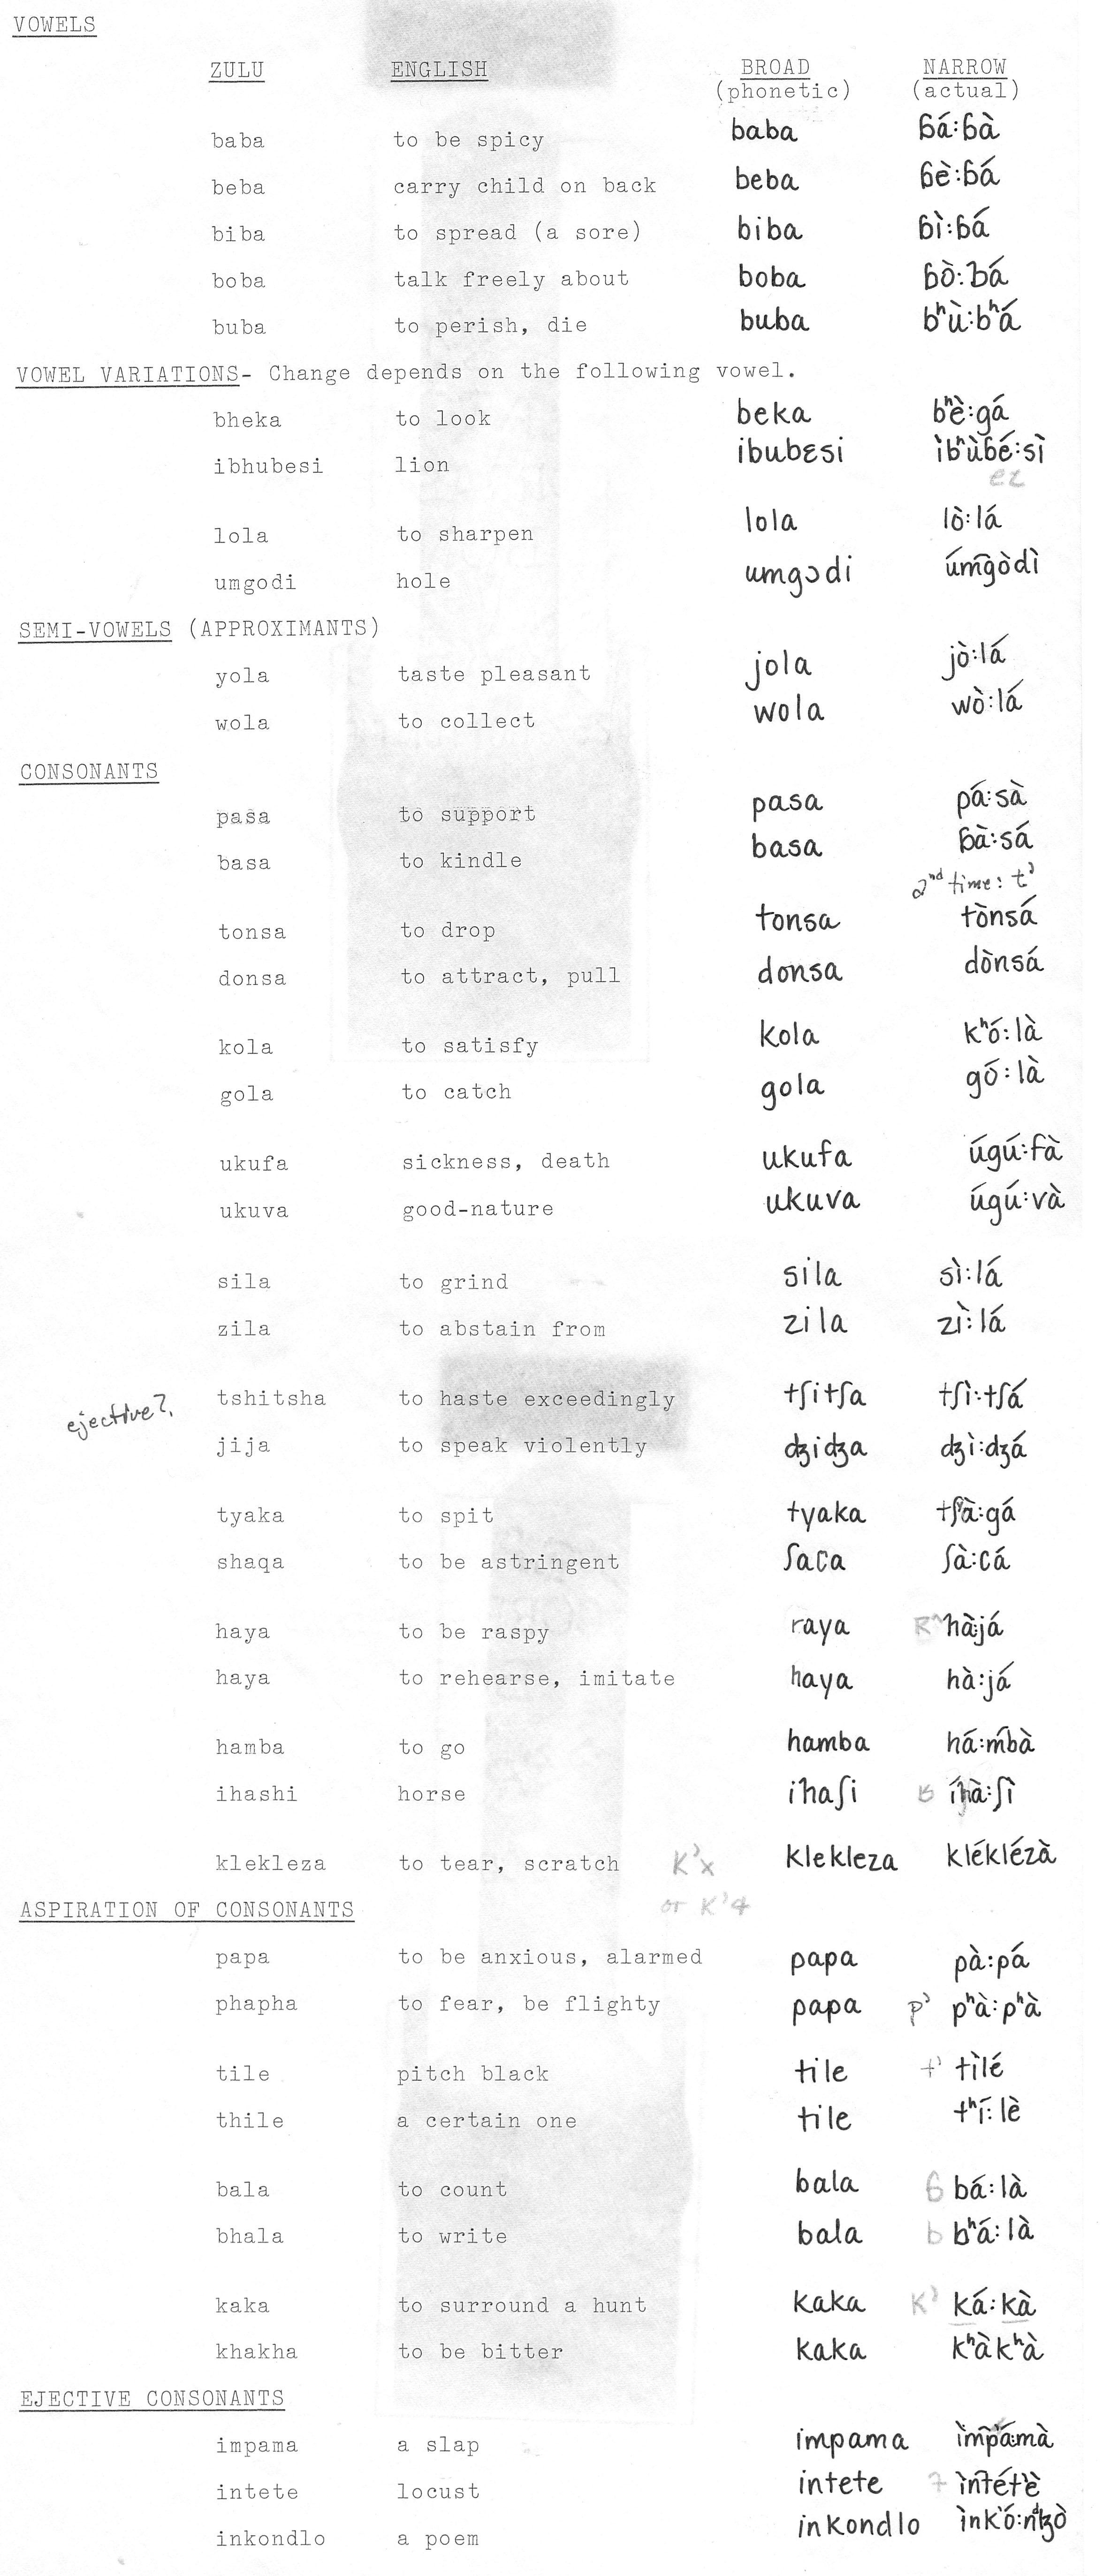 VOWELS
ZULU ENGLISH BROAD NARROW
(phonetic) (actual)
baba to be spicy baba ɓá:ɓà
beba carry child on back beba ɓè:ɓá
biba to spread (a sore) biba ɓì:ɓá
boba talk freely about boba ɓò:bá
buba to perish, die buba bʰù:bʰá
VOWEL VARIATIONS- Change depends on the following vowel.
bheka to look beka bʰè:gá
ibhubesi lion ibubɛsi ìbʰùɓé:sì
lola to sharpen lola lò:lá
umgodi hole umgɔdi úm̄gòdì
SEMI-VOWELS (APPROXIMANTS)
yola taste pleasant jola jò:lá
wola to collect wola wò:lá
CONSONANTS
pasa to support pasa pá:sà
basa to kindle basa ɓà:sá
2nd time: t'
tonsa to drop tonsa tònsá
donsa to attract, pull donsa dònsá
kola to satisfy kola kʰó:là
gola to catch gola gó:là
ukufa sickness, death ukufa úgú:fà
ukuva good-nature ukuva úgú:và
sila to grind sila sì:lá
zila to abstain from zila zì:lá
ejective?. tshitsha to haste exceedingly tʃitʃa tʃì:tʃá
jija to speak violently dʒidʒa dʒì:dʒá
tyaka to spit tyaka tʃʸà:gá
shaqa to be astringent ʃaca ʃà:cá
haya to be raspy raya hà:já
haya to rehearse, imitate haya hà:já
hamba to go hamba há:ḿbà
ihashi horse ihaʃi íhà:ʃì
klekleza to tear, scratch k'x klekleza klékléza̋
or k'4
ASPIRATION OF CONSONANTS
papa to be anxious, alarmed papa pà:pá
phapha to fear, be flighty papa p' pʰà:pʰà
tile pitch black tile t' tìlé
thile a certain one tile tʰí:lè
bala to count bala ɓ bá:là
bhala to write bala b bʰá:là
kaka to surround a hunt kaka k' ká:kà
khakha to be bitter kaka kʰàkʰà
EJECTIVE CONSONANTS
impama a slap impama ìmp'ámà
intete locust intete ìnt'ét'è
inkondlo a poem inkondlo ìnk'ó:ndɮò